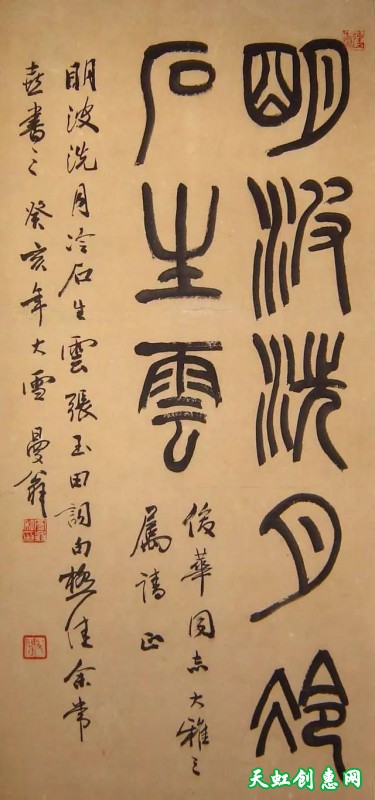 明波洗月冷
石生雲
俊華同志大雅之
属請正
明波洗月冷石生雲張玉田詞句極佳余常
喜書之癸亥年大雪曼翁
天虹创惠网